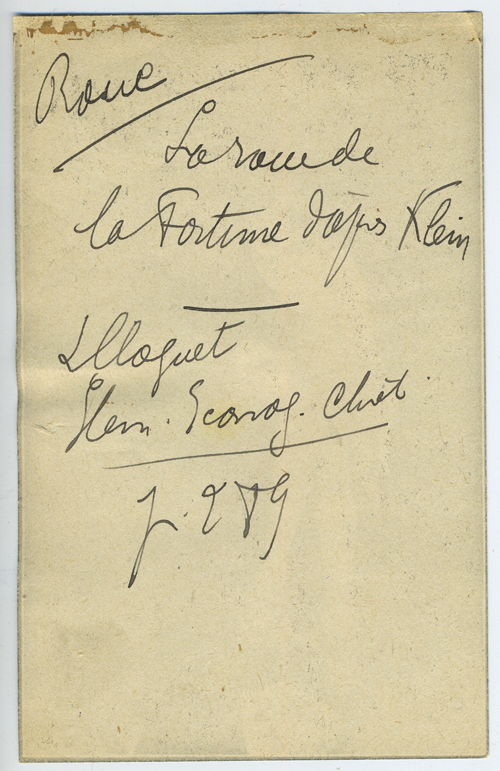 Roue
La roue de
la Fortune d'après Klein
L Cloquet
Elem. Iconog. Chrét.
p. 289